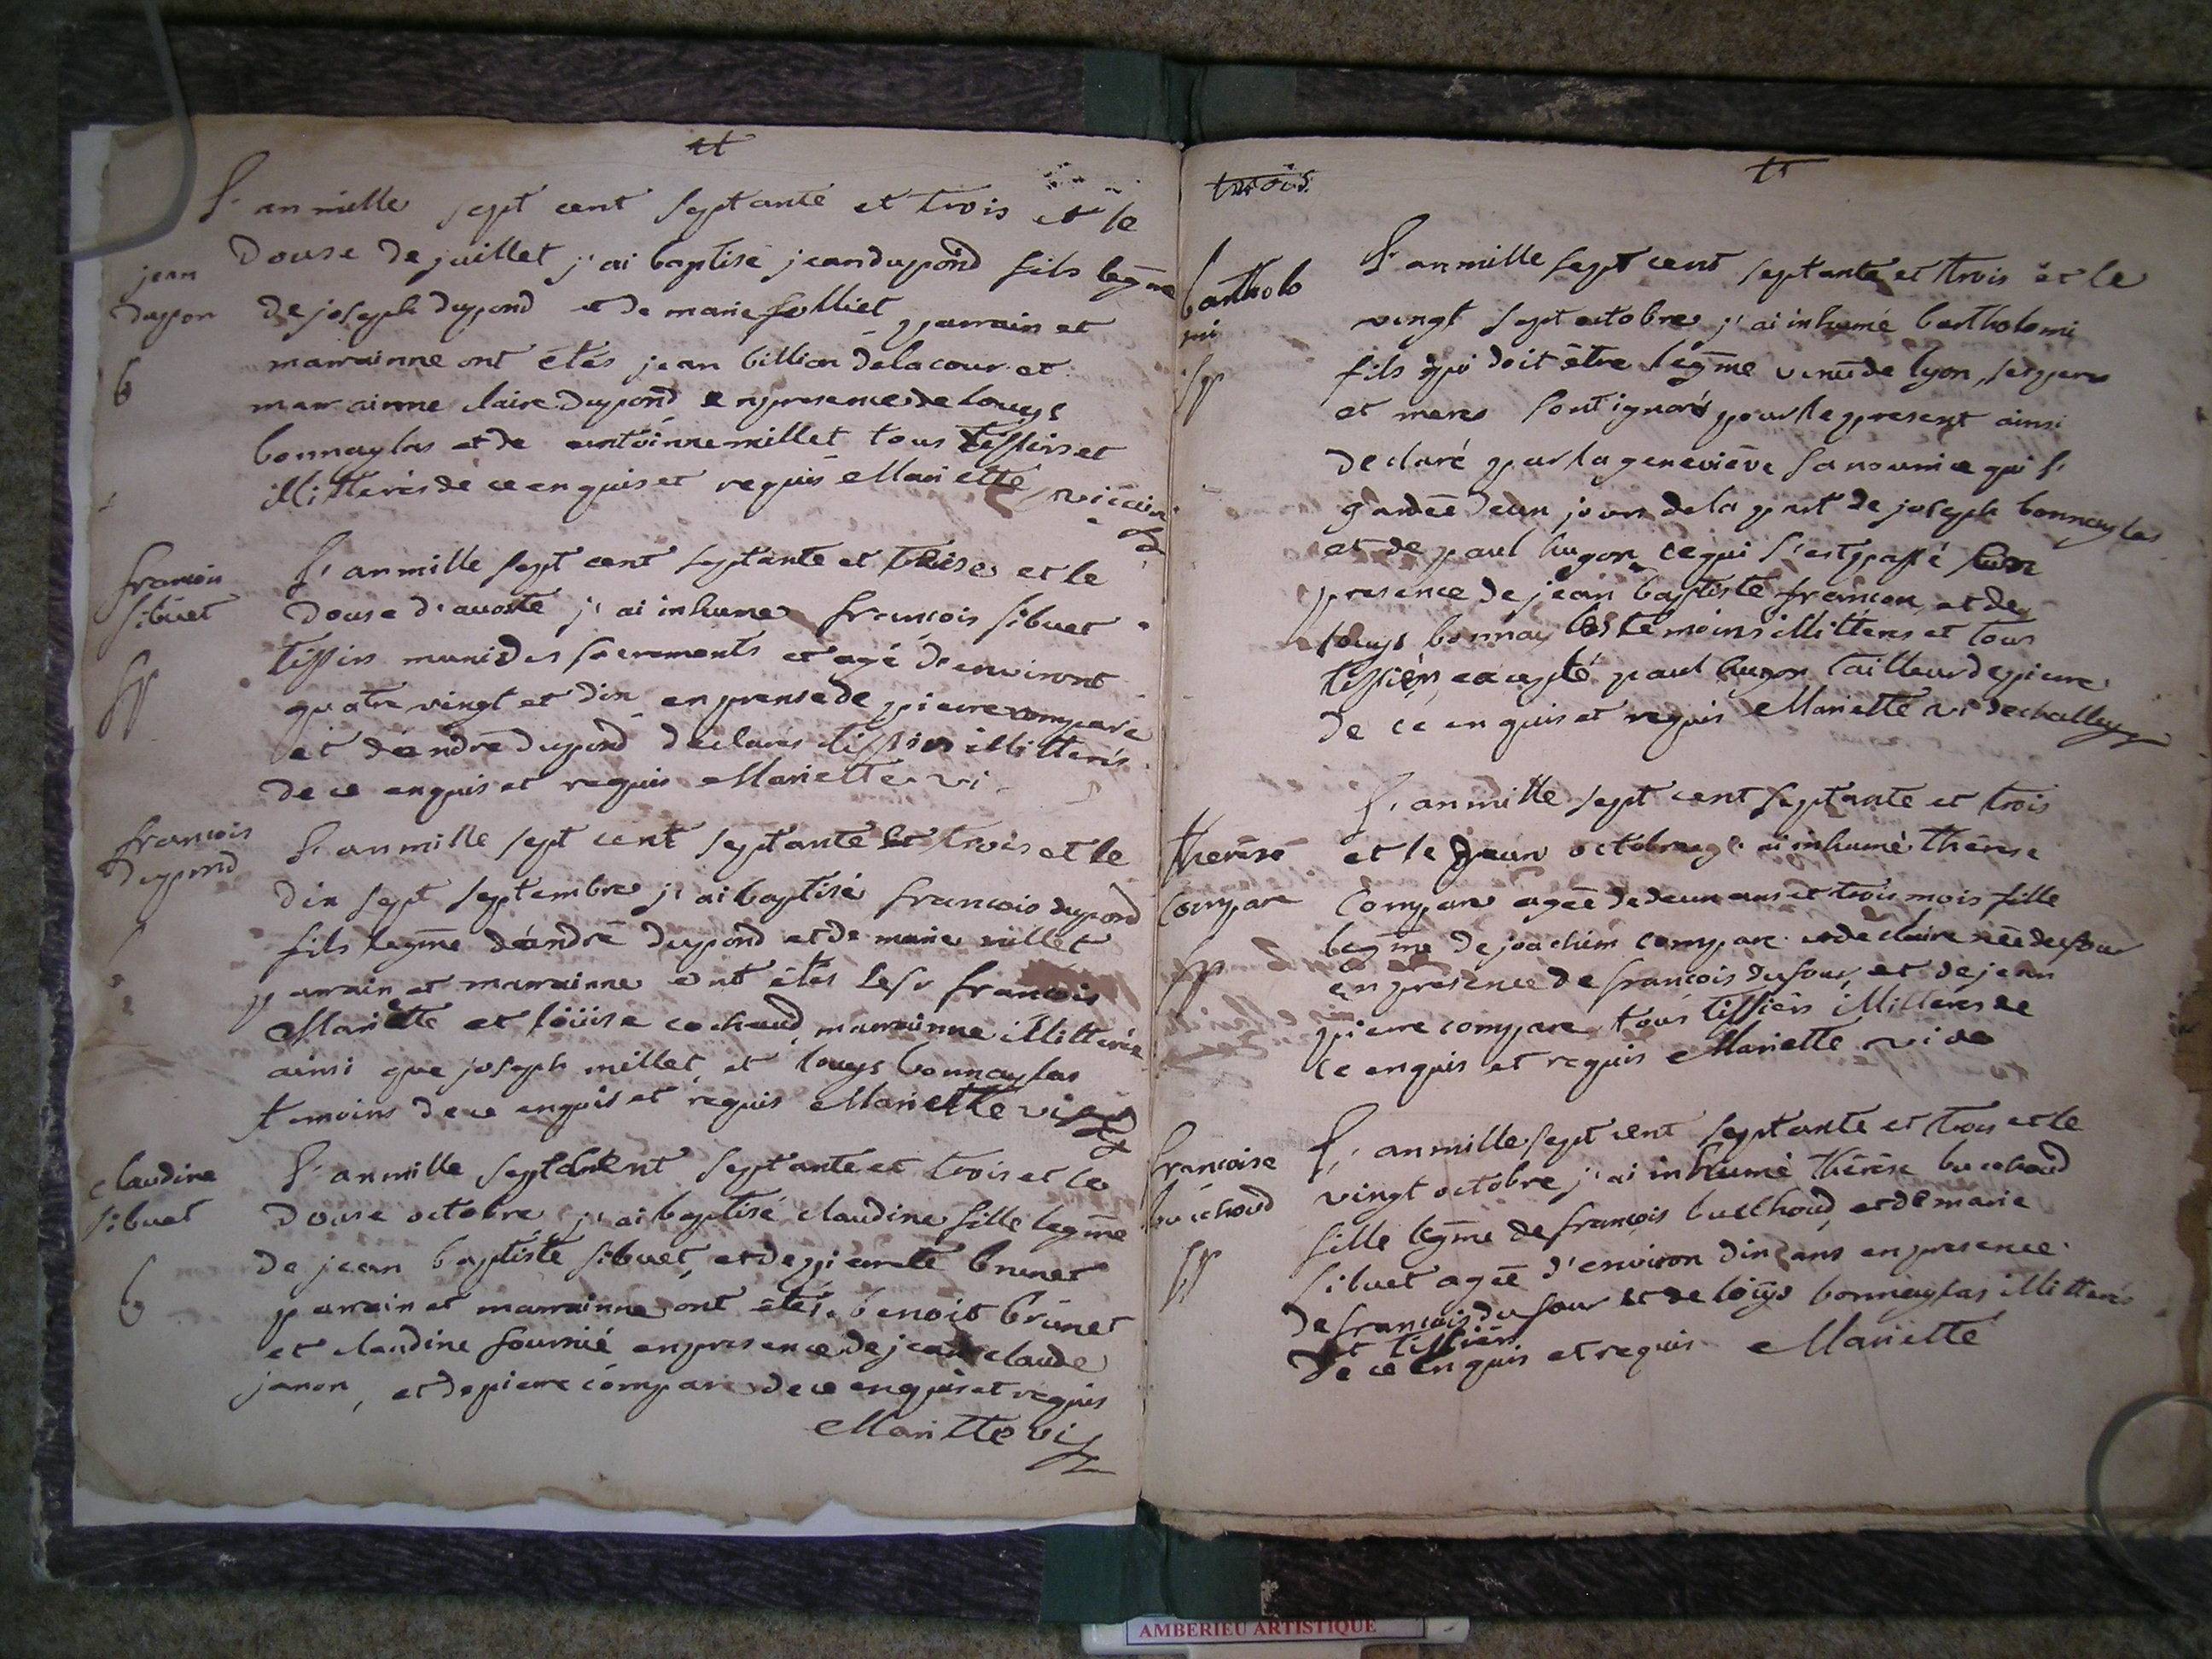 L'an mille sept cent septante et trois et le
jean
dupon
b
douse de juillet j'ai baptisé jean dupond fils legme
de joseph dupond et de marie folliet parrain et
marrainne ont étés jean billion delacour et
marrainne claire dupond en presence de louys
bonnaylas et de antoinne millet tous tissiers et
illitterés de ce enquis et requis Mariette
francois
sibuet
sp
L'an mille sept cent septante et trois et le
douse d'auoste j'ai inhumé francois sibuet
tissier muni des sacrements et agé de environt
quatre vingt et dix en presence de pierre compare
et d'andré dupond declarés tissiers illitterés
de ce enquis et requis Mariette vi
francois
dupond
L'an mille sept cent septante et trois et le
dix sept septembre j'ai baptisé francois dupond
fils legme d'andré dupond et de marie millet
parrain et marrainne ont étés le sr francois
Mariette et loüise cochaud marrainne illitterée
ainsi que joseph millet et louys bonnaylas
temoins de ce enquis et requis Mariette vi
claudine
sibuet
b
L'an mille sept cent septante et trois et le
douse octobre j'ai baptisé claudine fille legme
de jean baptiste sibuet, et de pierrete brunet
parrain et marrainne ont étés benoit brunet
et claudine fournié en presence de jean claude
janon, et de pierre compare de ce enquis et requis
Mariette vi
trois
bartholo
mi
sp
L'an mille sept cent septante et trois et le
vingt sept octobre j'ai inhumé bartholomi
fils qui doit être legme venu de lyon, ses pere
et mere sont ignorés pour le present ainsi
declaré par la geneviève sa nourrice qui l'
a gardée deux jours de la part de joseph bonnaylas
et de paul hugon ce qui s'est passé en
presence de jean baptiste francon et de
louys bonnaylas temoins illitterés et tous
tissiers excepté paul hugon tailleur de pierre
de ce enquis et requis Mariette vi de challey
therése
compare
sp
L'an mille sept cent septante et trois
et le deux octobre j'ai inhumé thérèse
compare agée de deux ans et trois mois fille
legme de joachim compare et de claire née dufour
en presence de francois dufour, et de jean
pierre compare tous tissiers illiterés de
ce enquis et requis Mariette vi de
francoise
buchoud
sp
L'an mille sept cent septante et trois et le
vingt octobre j'ai inhumé thérèse buchoud
fille legme de francois buchoud, et de marie
sibuet agée d'environ dix ans en presence
de francois dufour et de loüys bonnaylas illitterés
et tissiers
de ce enquis et requis Mariette
AMBERIEU ARTISTIQUE